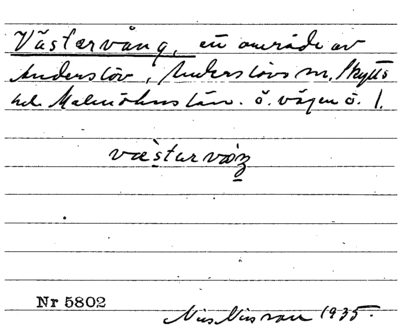 Västervång, en område av
Anderslöv, Anderslövs sn, Skytts
hd. Malmöhus län. ö. vägen ö. l.
væstarvåŋ
Nr 5802
Nils Nilsson 1935.